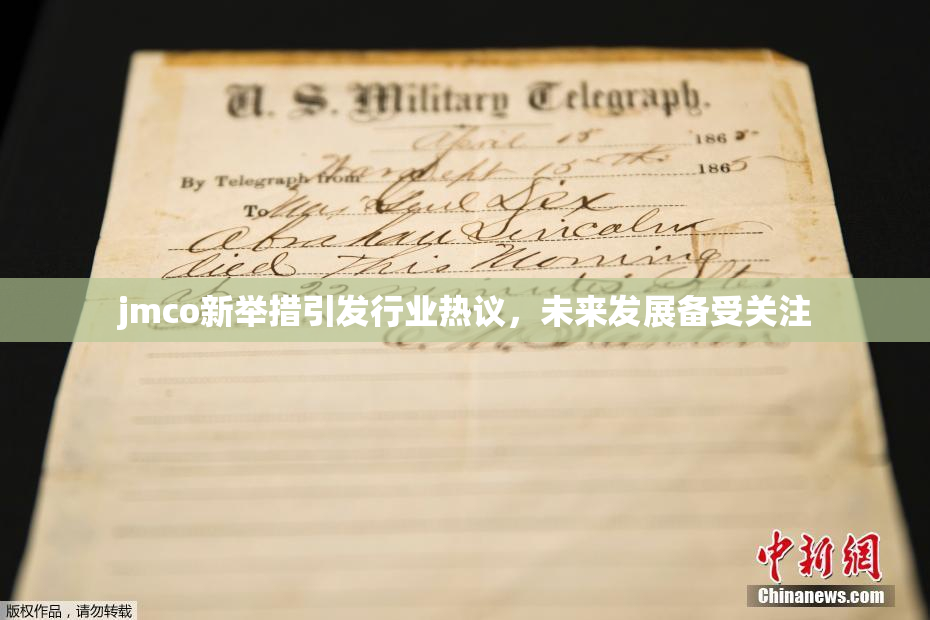 U. S. Military Telegraph.
April 15 1865-
By Telegraph from War Dept 15th 1865
To Maj Genl Dix
Abraham Lincoln
died this Morning
22 minutes after
jmco新举措引发行业热议，未来发展备受关注
中新网
Chinanews.com
版权作品，请勿转载